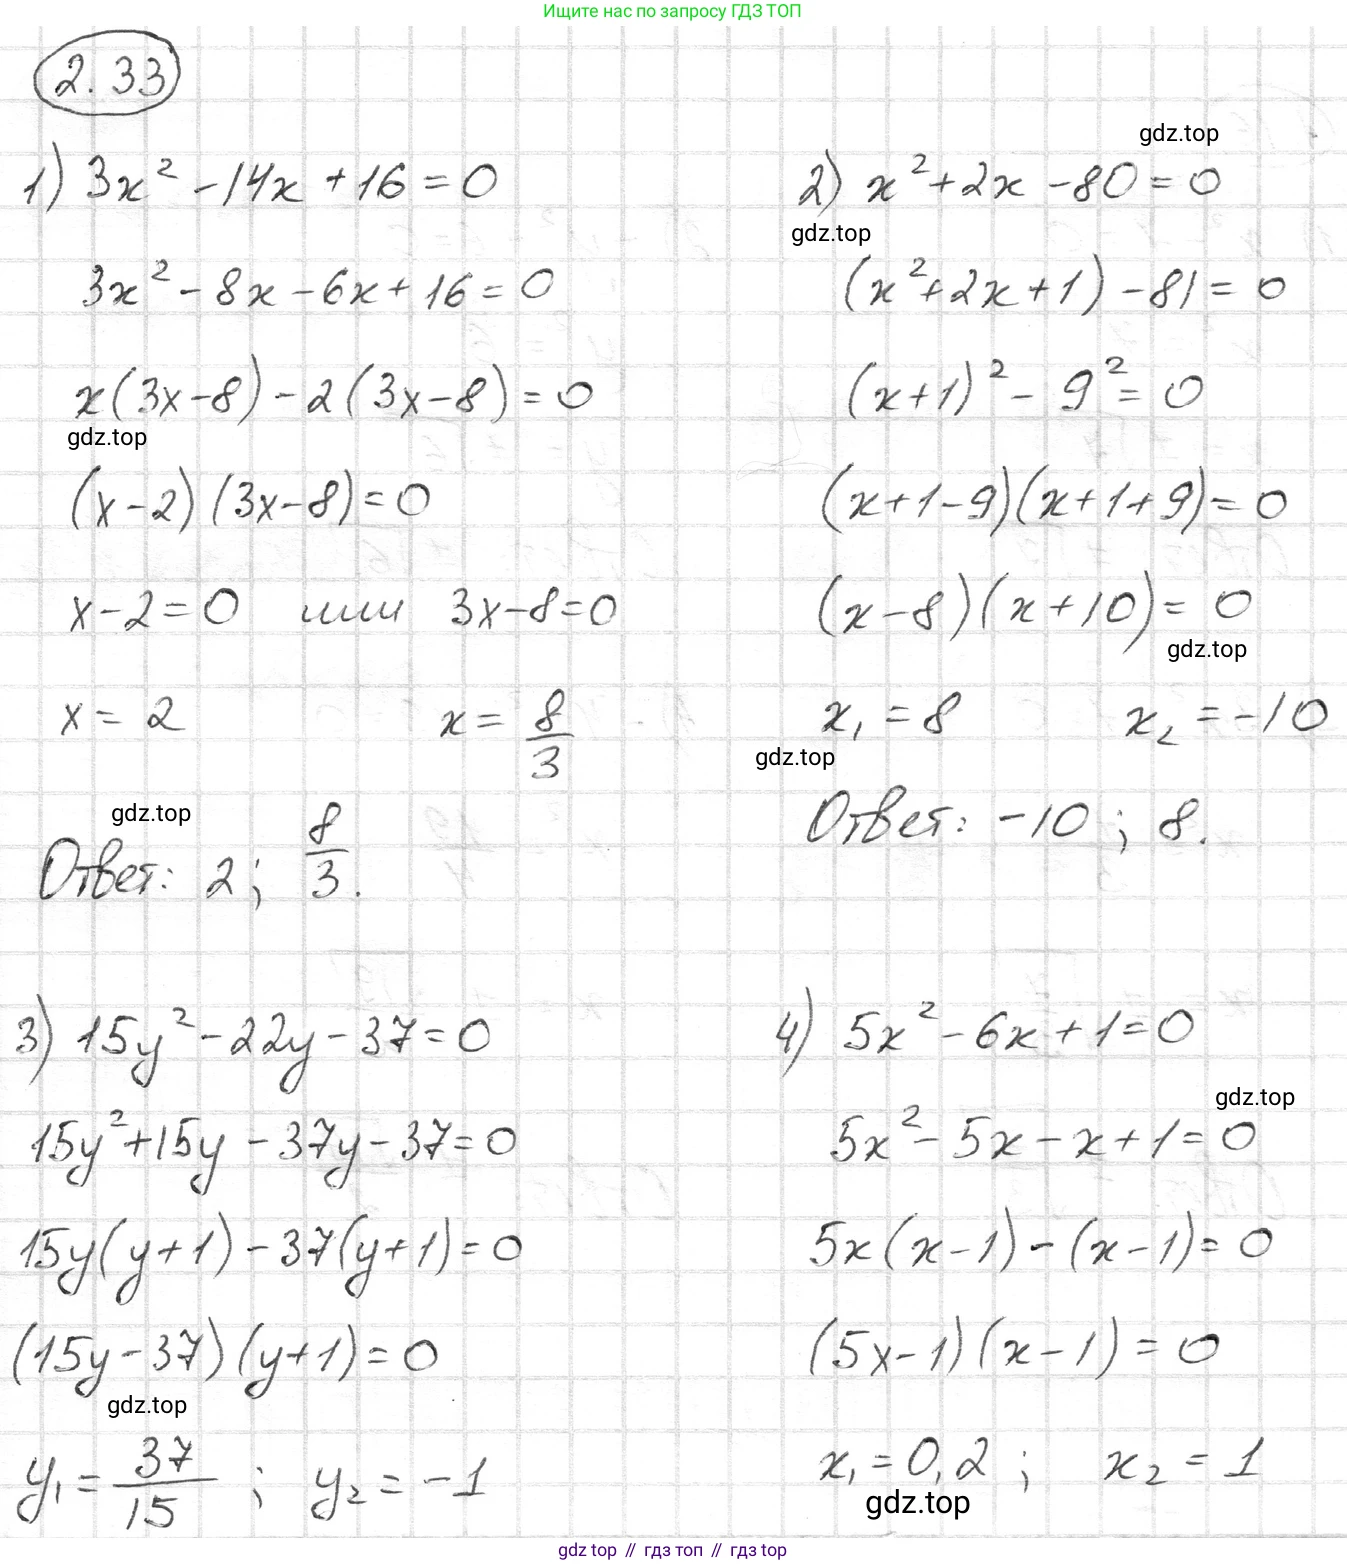 Ищите нас по запросу ГДЗ ТОП
2.33
1) 3x² - 14x + 16 = 0
3x² - 8x - 6x + 16 = 0
x(3x - 8) - 2(3x - 8) = 0
gdz.top
(x - 2)(3x - 8) = 0
x - 2 = 0 или 3x - 8 = 0
x = 2 x = 8/3
gdz.top
Ответ: 2; 8/3.
gdz.top
2) x² + 2x - 80 = 0
gdz.top
(x² + 2x + 1) - 81 = 0
(x + 1)² - 9² = 0
(x + 1 - 9)(x + 1 + 9) = 0
(x - 8)(x + 10) = 0
gdz.top
x₁ = 8 x₂ = -10
gdz.top
Ответ: -10; 8.
3) 15y² - 22y - 37 = 0
15y² + 15y - 37y - 37 = 0
15y(y + 1) - 37(y + 1) = 0
(15y - 37)(y + 1) = 0
gdz.top
y₁ = 37/15; y₂ = -1
4) 5x² - 6x + 1 = 0
gdz.top
5x² - 5x - x + 1 = 0
5x(x - 1) - (x - 1) = 0
(5x - 1)(x - 1) = 0
x₁ = 0,2; x₂ = 1
gdz.top
gdz top // гдз топ // гдз top